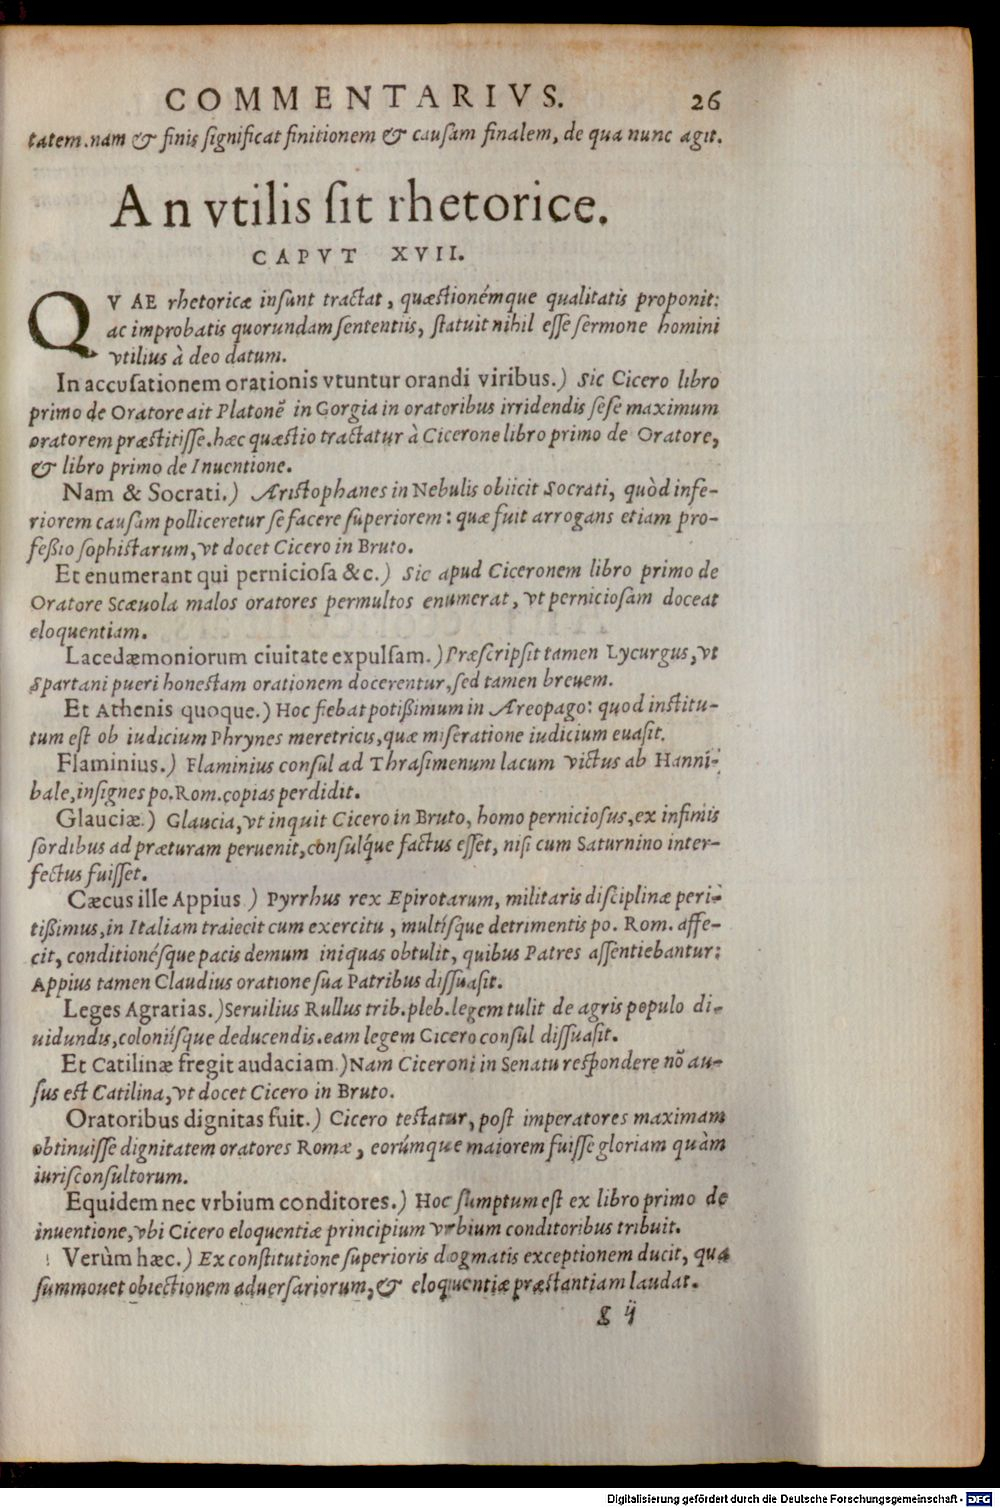 COMMENTARIVS. 26
tatem. nam & finis ſignificat finitionem & cauſam finalem, de qua nunc agit.
An vtilis ſit rhetorice.
CAPVT XVII.
QVAE rhetoricæ inſunt tractat, quæstionémque qualitatis proponit:
ac improbatis quorundam ſententiis, ſtatuit nihil eſſe ſermone homini
vtilius à deo datum.
In accuſationem orationis vtuntur orandi viribus.) Sic Cicero libro
primo de Oratore ait Platonē in Gorgia in oratoribus irridendis ſeſe maximum
oratorem præstitiſſe. hæc quæstio tractatur à Cicerone libro primo de Oratore,
& libro primo de Inuentione.
Nam & Socrati.) Aristophanes in Nebulis obiicit Socrati, quòd infe-
riorem cauſam polliceretur ſe facere ſuperiorem: quæ fuit arrogans etiam pro-
feßio ſophistarum, vt docet Cicero in Bruto.
Et enumerant qui pernicioſa &c.) Sic apud Ciceronem libro primo de
Oratore Scæuola malos oratores permultos enumerat, vt pernicioſam doceat
eloquentiam.
Lacedæmoniorum ciuitate expulſam.) Præſcripſit tamen Lycurgus, vt
Spartani pueri honestam orationem docerentur, ſed tamen breuem.
Et Athenis quoque.) Hoc fiebat potißimum in Areopago: quod inſtitu-
tum eſt ob iudicium Phrynes meretricis, quæ miſeratione iudicium euaſit.
Flaminius.) Flaminius conſul ad Thraſimenum lacum victus ab Hanni-
bale, inſignes po. Rom. copias perdidit.
Glauciæ.) Glaucia, vt inquit Cicero in Bruto, homo pernicioſus, ex infimis
ſordibus ad præturam peruenit, conſulq́ue factus eſſet, niſi cum Saturnino inter-
fectus fuiſſet.
Cæcus ille Appius.) Pyrrhus rex Epirotarum, militaris diſciplinæ peri-
tißimus, in Italiam traiecit cum exercitu, multíſque detrimentis po. Rom. affe-
cit, conditionéſque pacis demum iniquas obtulit, quibus Patres aſſentiebantur:
Appius tamen Claudius oratione ſua Patribus diſſuaſit.
Leges Agrarias.) Seruilius Rullus trib. pleb. legem tulit de agris populo di-
uidundis, coloniíſque deducendis. eam legem Cicero conſul diſſuaſit.
Et Catilinæ fregit audaciam.) Nam Ciceroni in Senatu reſpondere nō au-
ſus eſt Catilina, vt docet Cicero in Bruto.
Oratoribus dignitas fuit.) Cicero teſtatur, poſt imperatores maximam
obtinuiſſe dignitatem oratores Romæ, eorúmque maiorem fuiſſe gloriam quàm
iuriſconſultorum.
Equidem nec vrbium conditores.) Hoc ſumptum eſt ex libro primo de
inuentione, vbi Cicero eloquentiæ principium vrbium conditoribus tribuit.
Verùm hæc.) Ex conſtitutione ſuperioris dogmatis exceptionem ducit, qua
ſummouet obiectionem aduerſariorum, & eloquentiæ præſtantiam laudat.
g ij
Digitalisierung gefördert durch die Deutsche Forschungsgemeinschaft - DFG